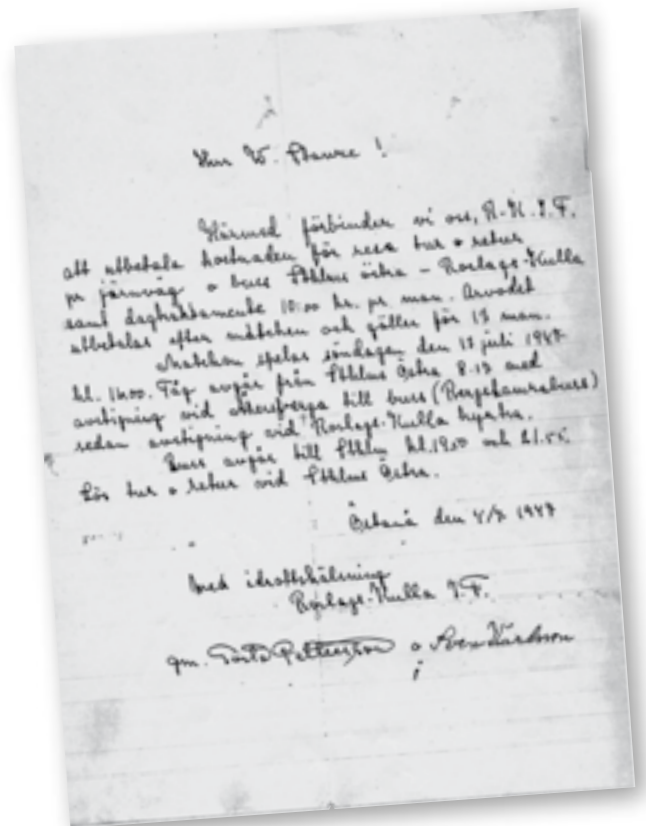 Herr W.
Härmed förbinder vi oss, R-K.I.F.
att utbetala kostnaden för resa tur o retur
pr järnväg o buss Sthlms östra – Roslags-Kulla
samt dagtraktamente 10:00 kr. pr man. Arvodet
utbetalas efter matchen och gäller för 13 man.
Matchen spelas söndagen den 13 juli 1947
kl. Tåg avgår från Sthlms Östra 8.13 med
avstigning vid Åkersberga till buss (Bergshamrabuss)
sedan avstigning vid Roslags-Kulla kyrka.
Buss avgår till Sthlm kl. 19.50 och 21.55.
Lös tur o retur vid Sthlms Östra.
den 4/7 1947
Med idrottshälsning
Roslags-Kulla I.F.
gm. Gösta Pettersson o Sven Karlsson